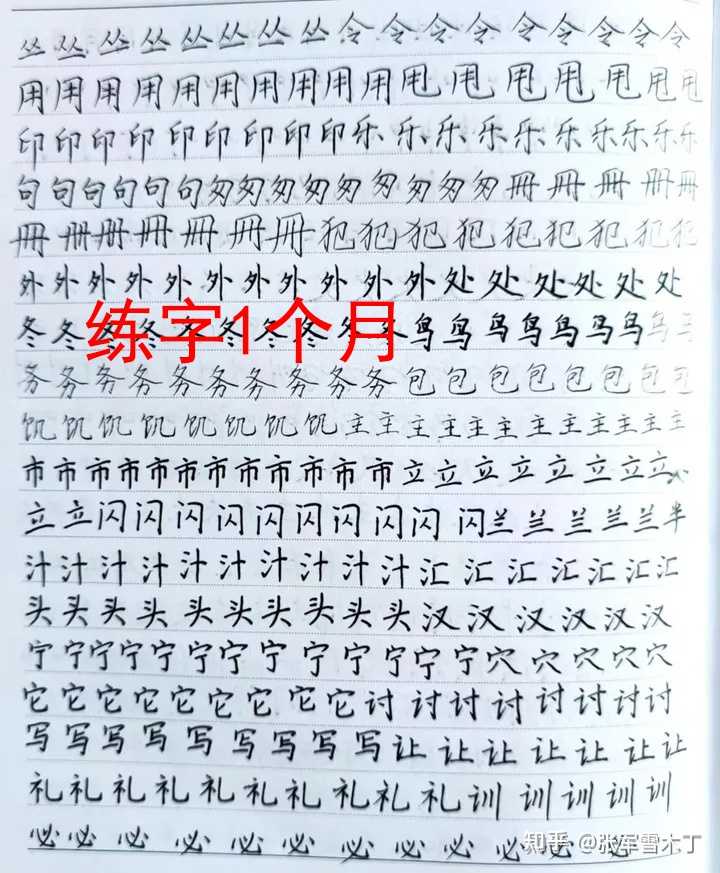 丛丛丛丛丛丛丛丛令令令令令令令令令
用用用用用用用用用用甩甩甩甩甩甩甩
印印印印印印印印印乐乐乐乐乐乐乐乐乐乐
句句句句句句匆匆匆匆匆匆匆匆匆册册册册册
册册册册册册册犯犯犯犯犯犯犯犯犯
外外外外外外外外外外外处处处处处处
冬冬冬冬冬冬冬冬冬冬鸟鸟鸟鸟鸟鸟鸟鸟鸟
练字1个月
务务务务务务务务务务包包包包包包包包
饥饥饥饥饥饥饥饥主主主主主主主主主主主主
市市市市市市市市市市市市立立立立立立立立
立立闪闪闪闪闪闪闪闪闪闪兰兰兰兰兰半
汁汁汁汁汁汁汁汁汁汁汇汇汇汇汇汇汇
头头头头头头头头头头汉汉汉汉汉汉
宁宁宁宁宁宁宁宁宁宁宁宁宁穴穴穴穴穴
它它它它它它它它它讨讨讨讨讨讨讨讨
写写写写写写写写写让让让让让让让
礼礼礼礼礼礼礼礼礼礼训训训训训
必必必必必必必必必必必必
知乎 @张军雪木丁